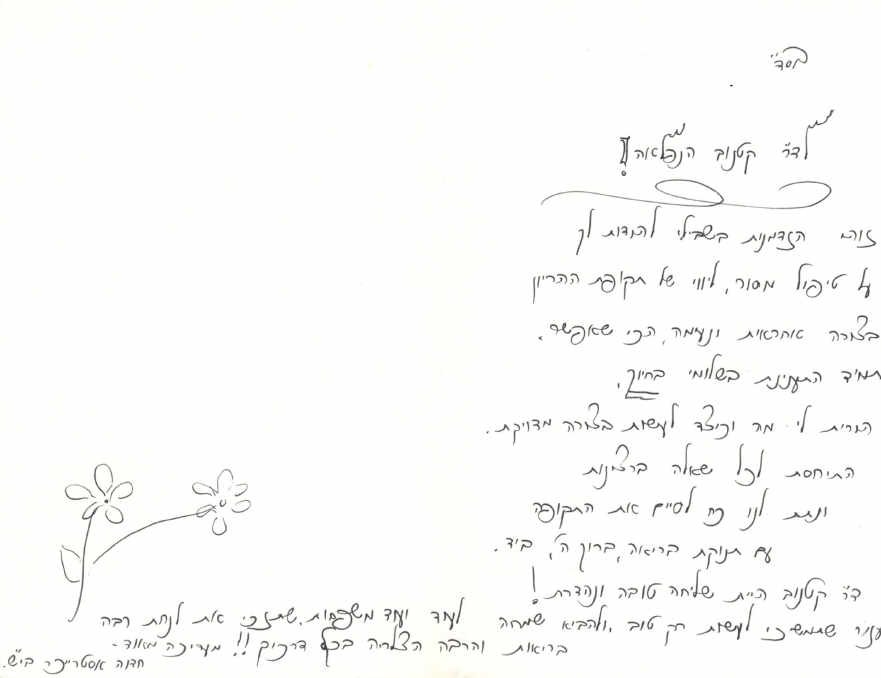 בסד"
לדר' קטנוב הנפלאה!
זוהי הזדמנות בשבילי להודות לך
על טיפול מסור, ליווי של תקופת ההריון
בצורה אחראית ונעימה, הכי שאפשר.
תמיד התענינת בשלומי בחיוך,
הורית לי מה וכיצד לעשות בצורה מדויקת.
התיחסת לכל שאלה ברצינות
ונתת לנו כח לסיים את התקופה
עם תינוקת בריאה, ברוך ה', ביד.
ד"ר קטנוב היית שליחה טובה ונהדרת!
שתמשיכי לעשות רק טוב, ולהביא שמחה לעוד ועוד משפחות, שתזכי את לנחת רבה
בריאות והרבה הצלחה בכל דרכיך!! מעריכה מאוד-
חדוה